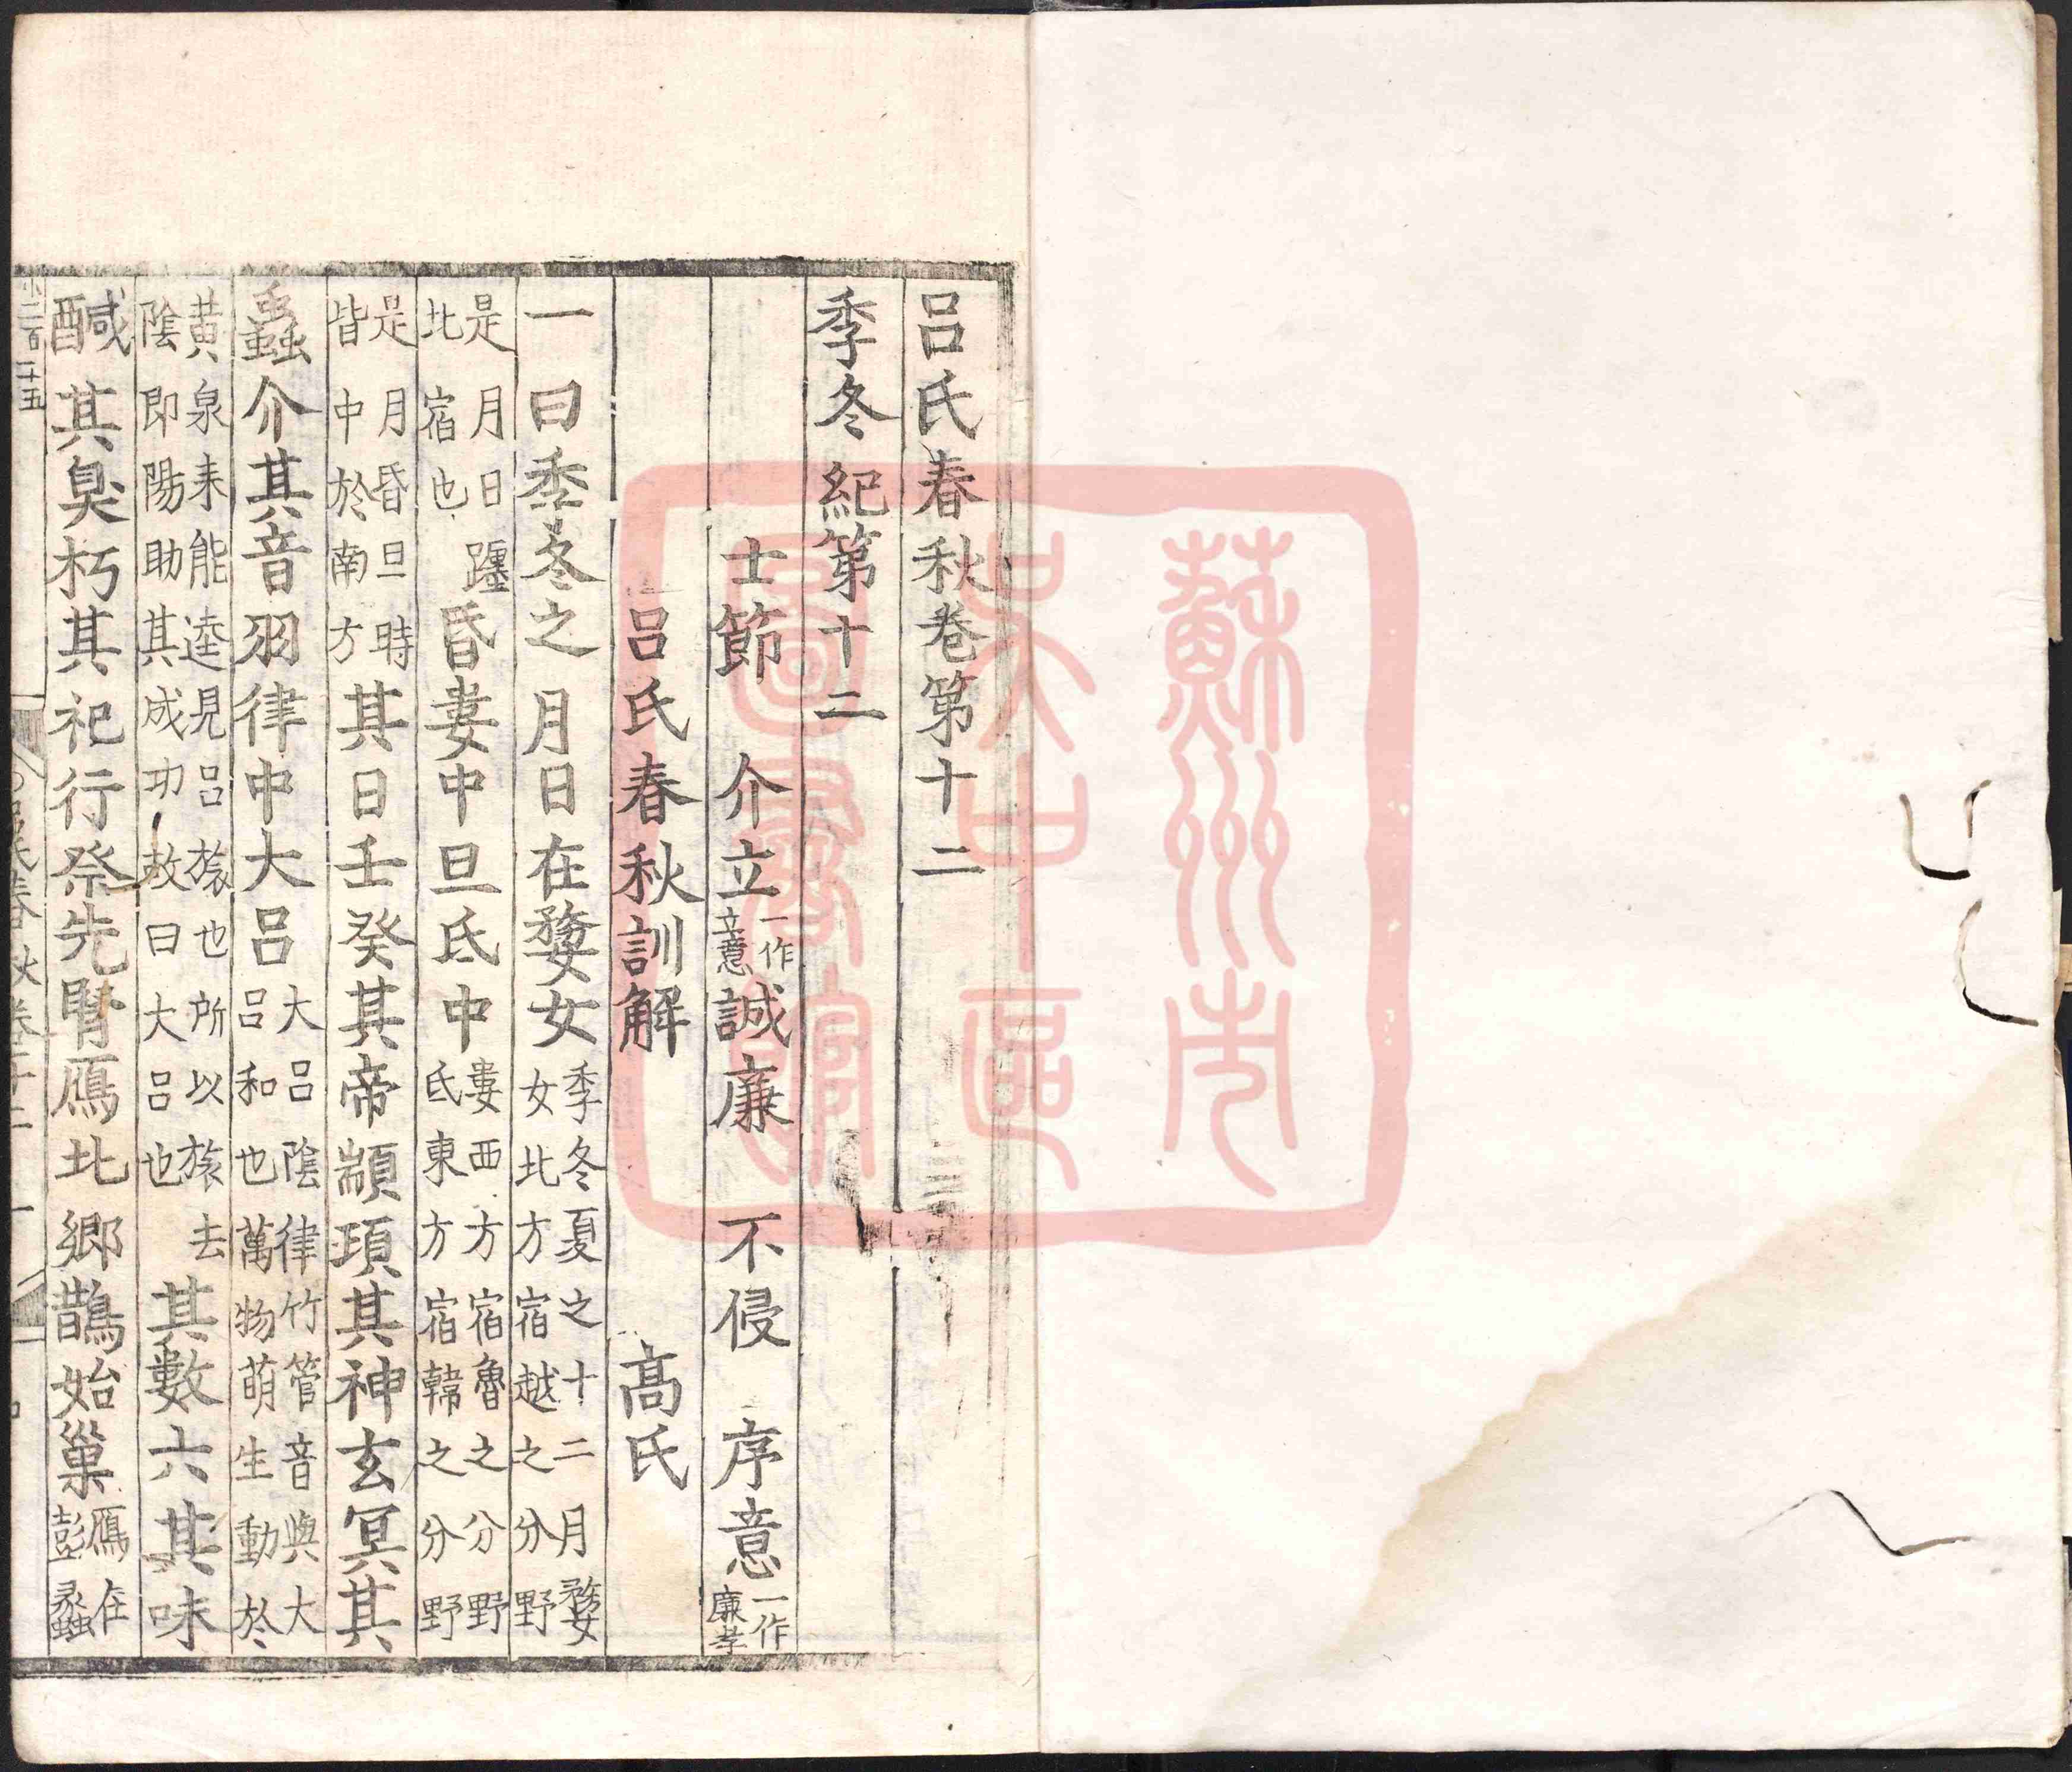 呂氏春秋卷第十二
季冬紀第十二
士節 介立一作立意 誠廉 不侵 序意一作廉孝
呂氏春秋訓解 高氏
一曰季冬之月日在婺女季冬夏之十二月婺女北方宿越之分野
是月日躔北宿也昏婁中旦氐中婁西方宿魯之分野氐東方宿韓之分野
是月昏旦時皆中於南方其日壬癸其帝顓頊其神玄冥其
蟲介其音羽律中大呂大呂陰律竹管音與大呂和也萬物萌生動於
黃泉未能達見呂旅也所以旅去陰即陽助其成功故曰大呂也其數六其味
鹹其臭朽其祀行祭先腎鴈北鄉鵲始巢鴈在彭蠡
呂氏春秋卷十二 一
蘇州市
吳中區
圖書館